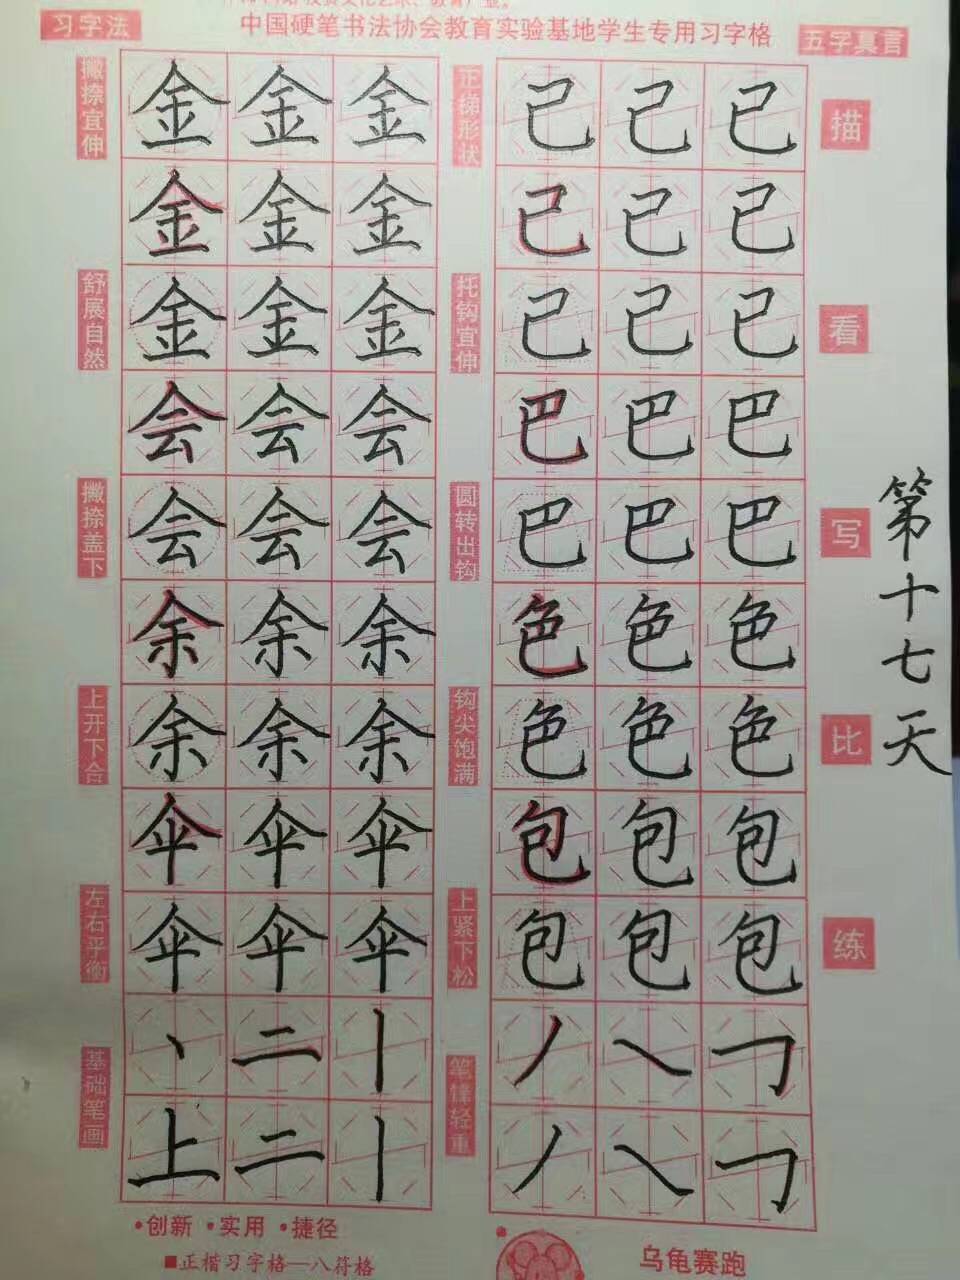 习字法
中国硬笔书法协会教育实验基地学生专用习字格
五字真言
撇捺宜伸
舒展自然
撇捺盖下
上开下合
左右平衡
基础笔画
金金金
金金金
金金金
会会会
会会会
余余余
余余余
伞伞伞
伞伞伞
丶二丨
上二丨
正梯形状
托钩宜伸
圆转出钩
钩尖饱满
上紧下松
笔锋轻重
己己己
己己己
己己己
巴巴巴
巴巴巴
色色色
色色色
包包包
包包包
丿㇏𠃌
丿㇏𠃌
描
看
写
比
练
第十七天
•创新 •实用 •捷径
■正楷习字格—八符格
乌龟赛跑